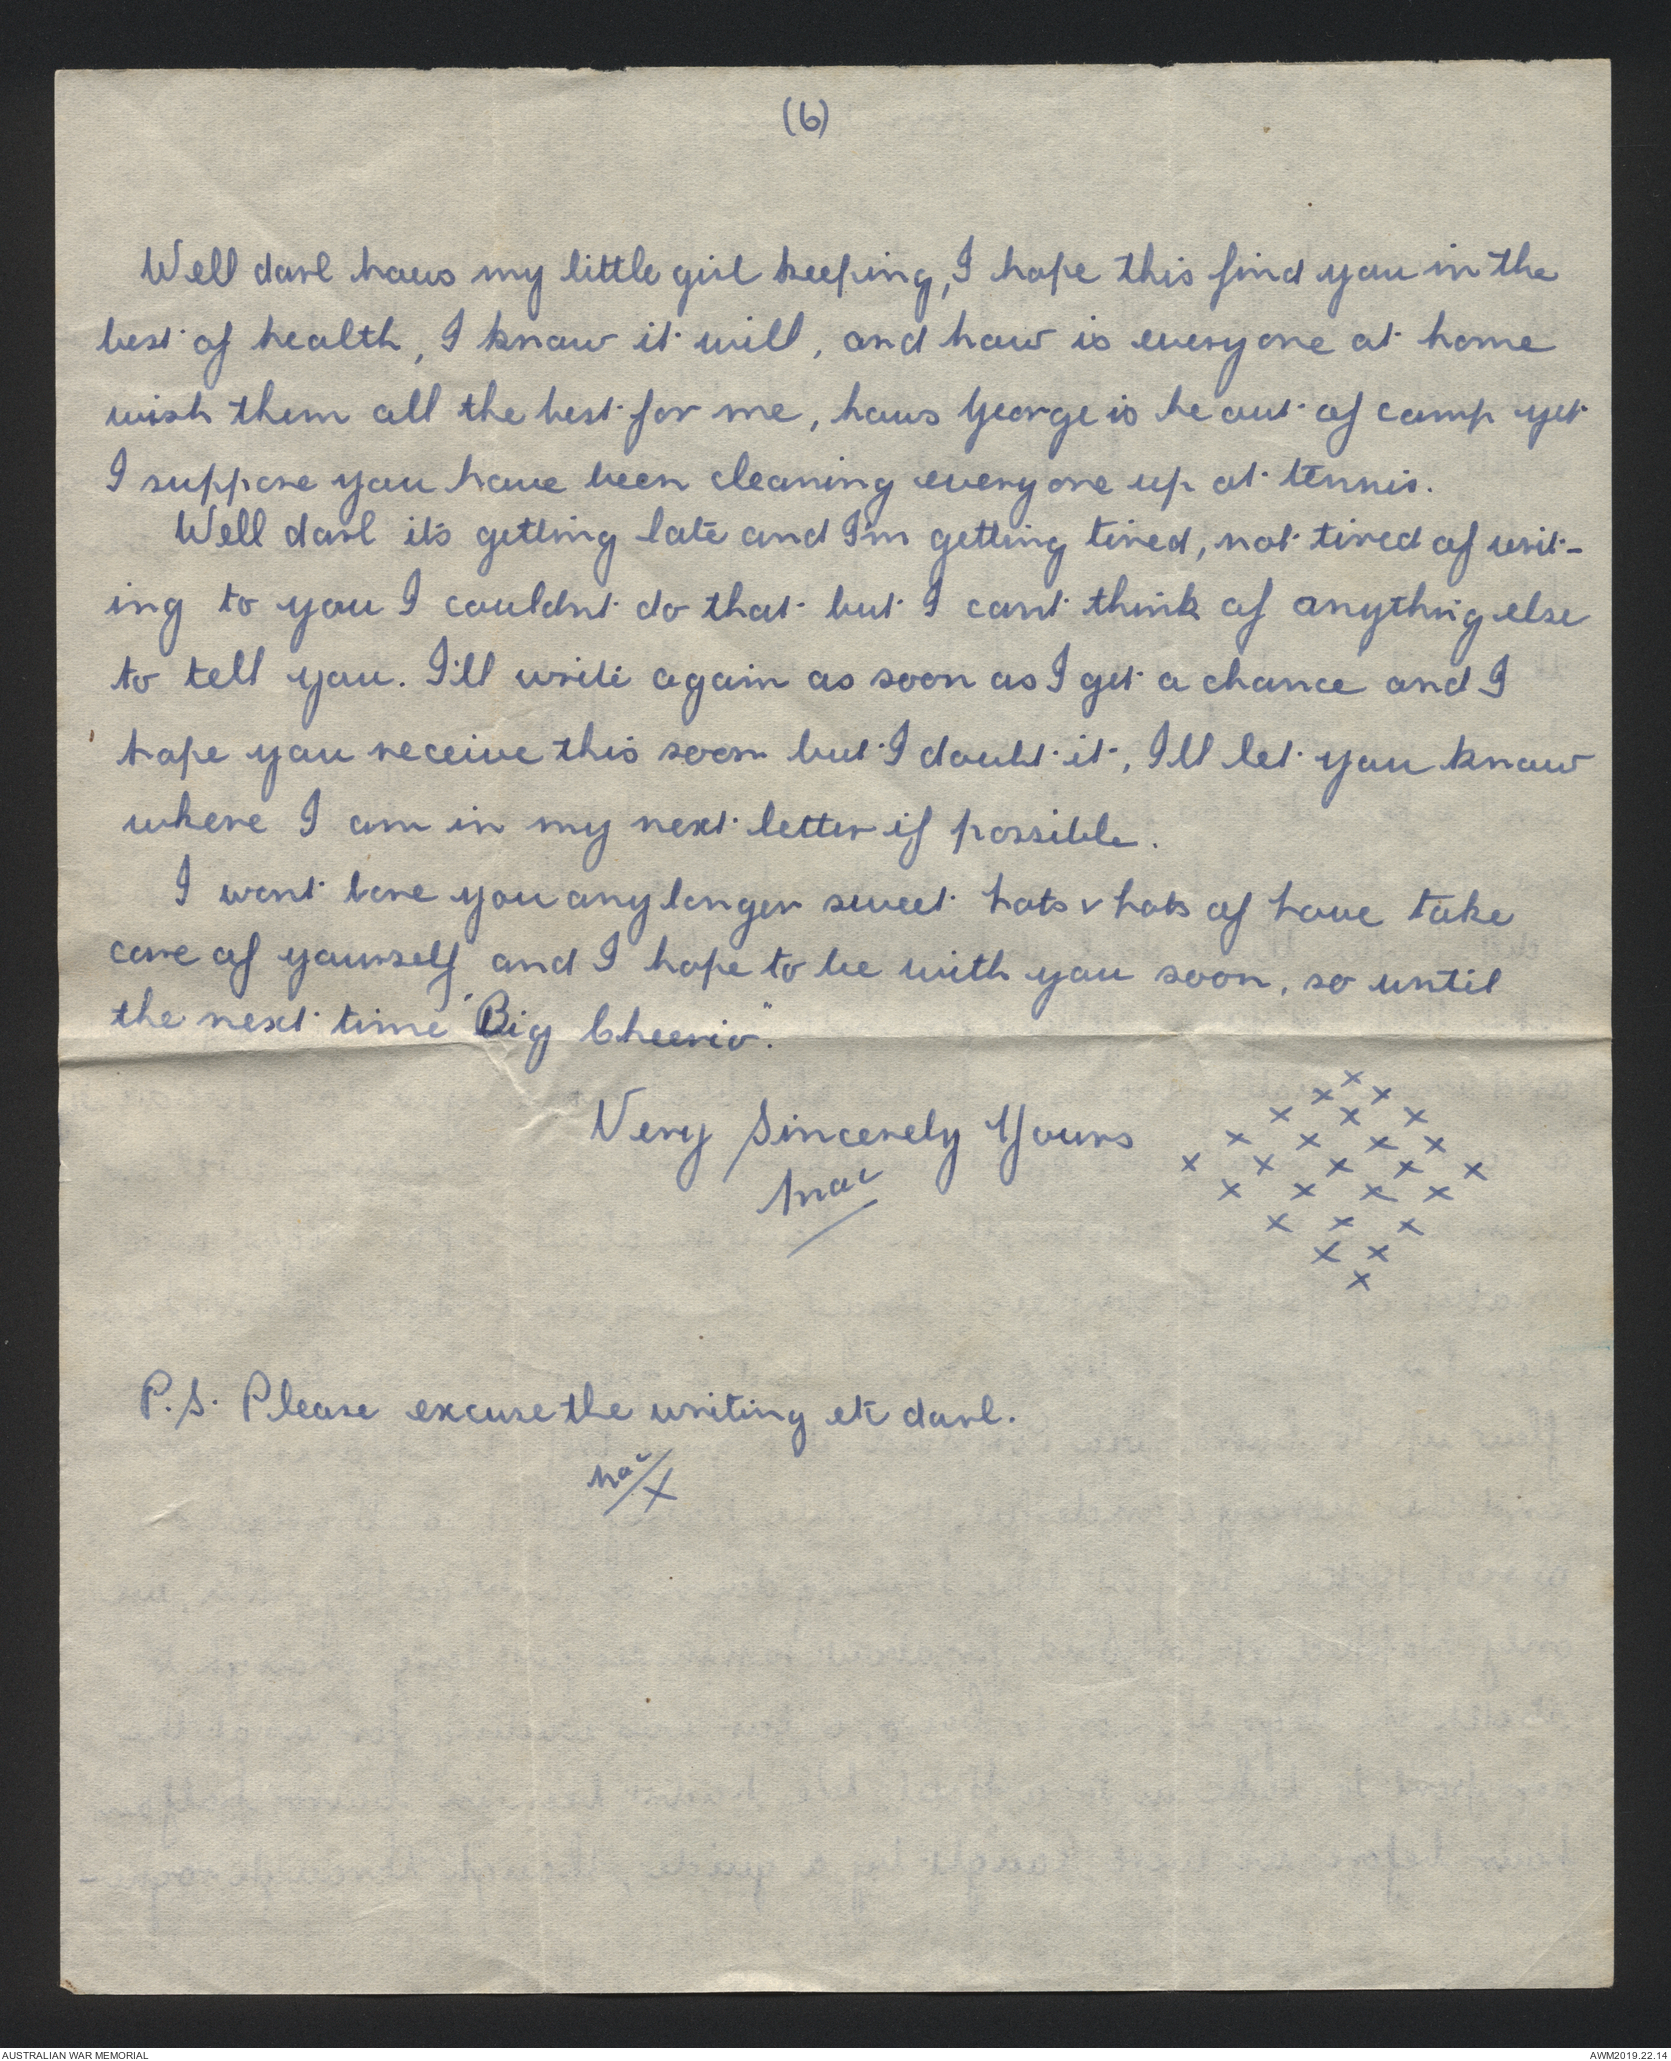 (6)
Well darl hows my little girl keeping, I hope this find you in the
best of health, I know it will, and how is everyone at home
wish them all the best for me, hows George is he out of camp yet
I suppose you have been cleaning everyone up at tennis.
Well darl it's getting late and I'm getting tired, not tired of writ-
ing to you I couldnt do that but I cant think of anythng else
to tell you. I'll write again as soon as I get a chance and I
hope you receive this soon but I doubt it, I'll let you know
where I am in my next letter if possible.
I wont bore you any longer sweet hots & hots of hove take
care of yourself and I hope to be with you soon, so until
the next time "Big Cheerio".
Very Sincerely Yours
Mac
x
x x
x x x
x x x x x
x x x x x
x x x x
x x x
x x
x
P.S. Please excuse the writing etc darl.
Mac X
AUSTRALIAN WAR MEMORIAL
AWM2019.22.14